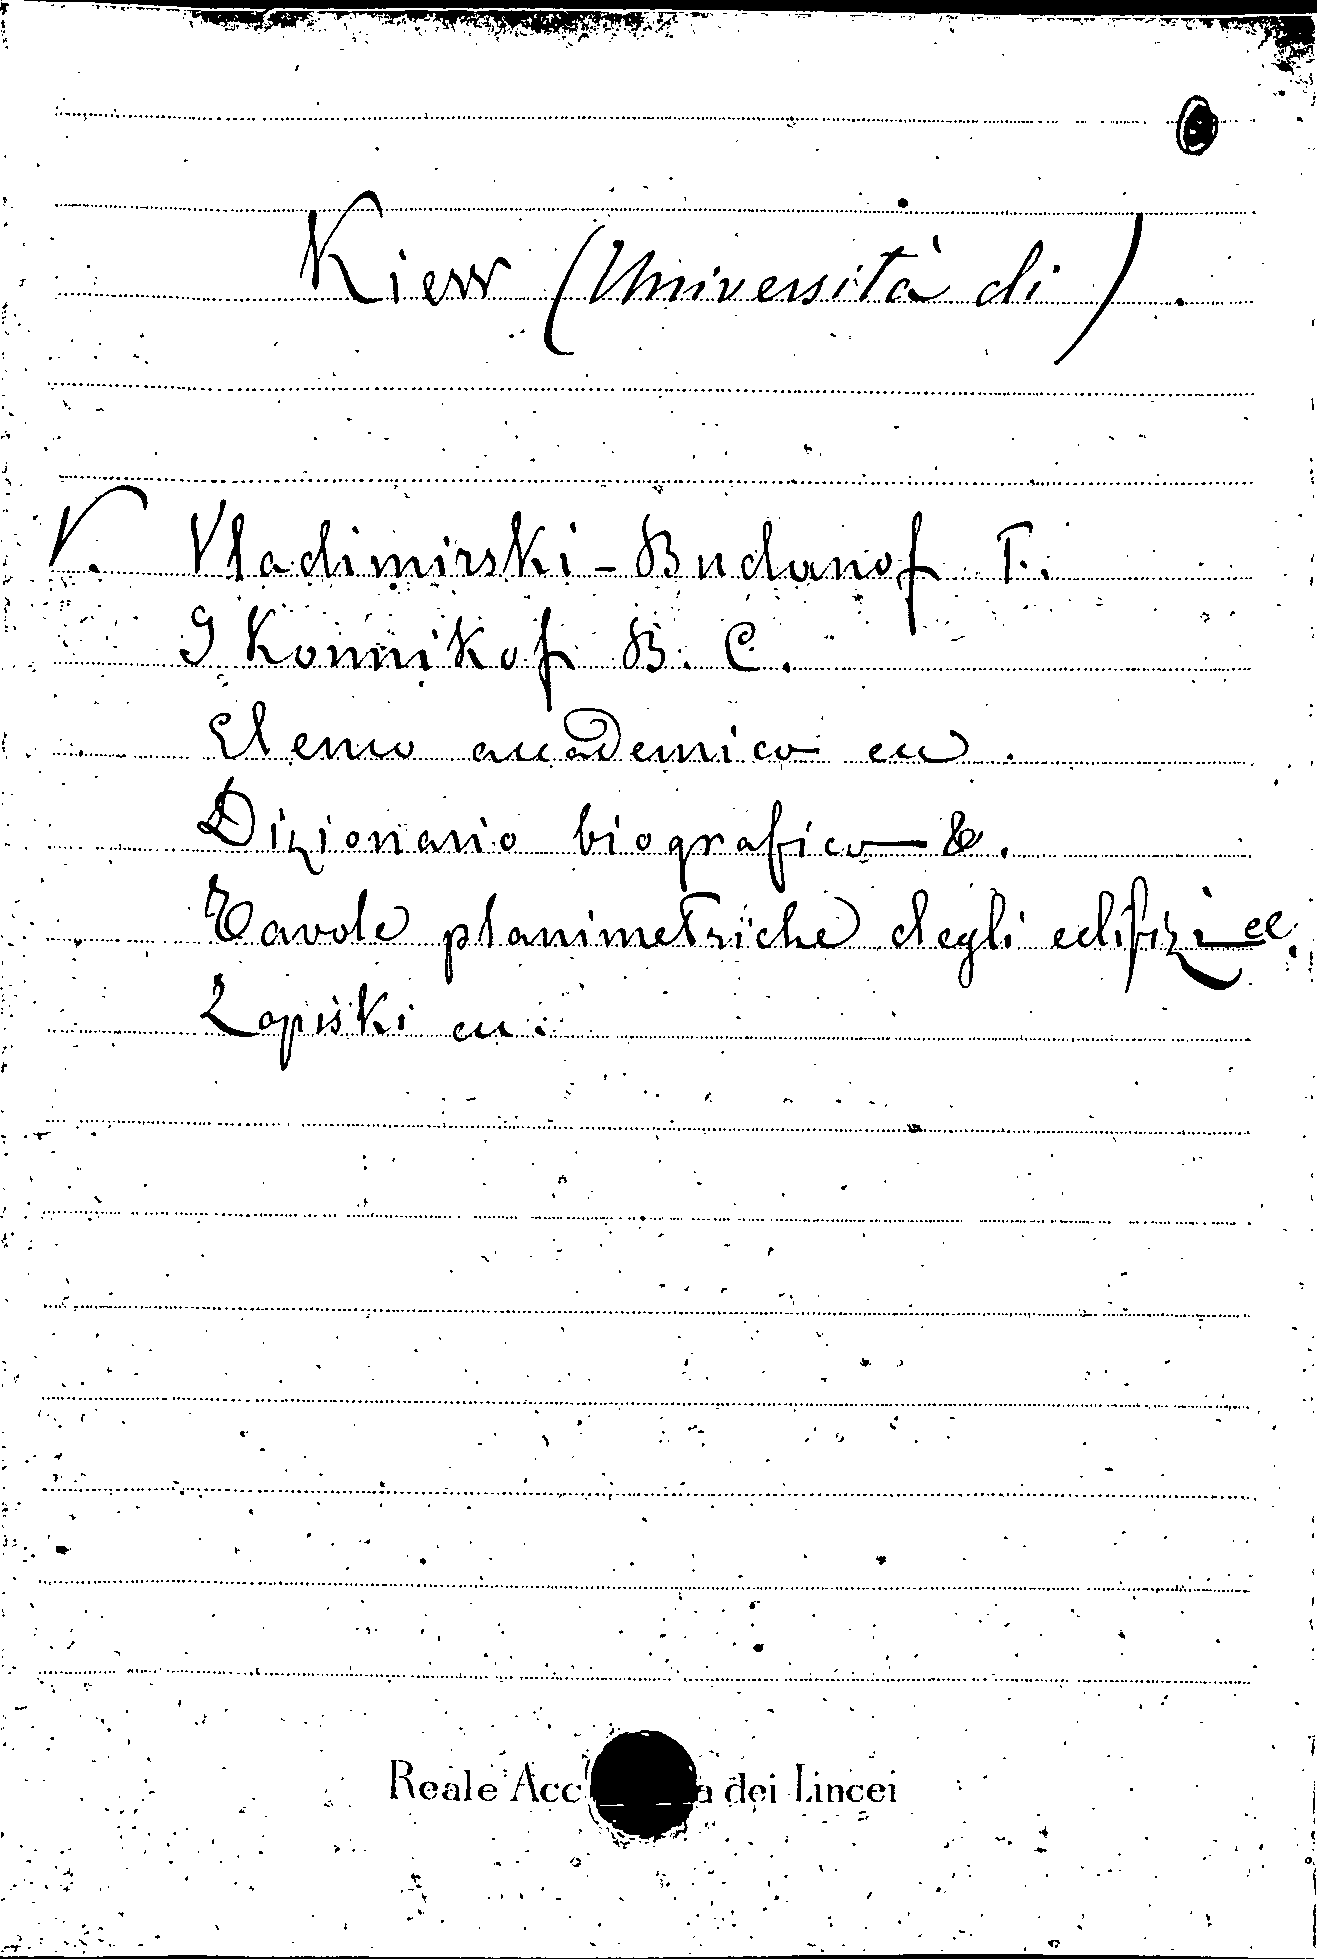 Kiew (Università di).
V. Vladimirski-Budanof F.
Ikonnikof B. C.
Elenco accademico ecc.
Dizionario biografico &.
Tavole planimetriche degli edifizi ec.
Zapiski ecc.
Reale Acc a dei Lincei